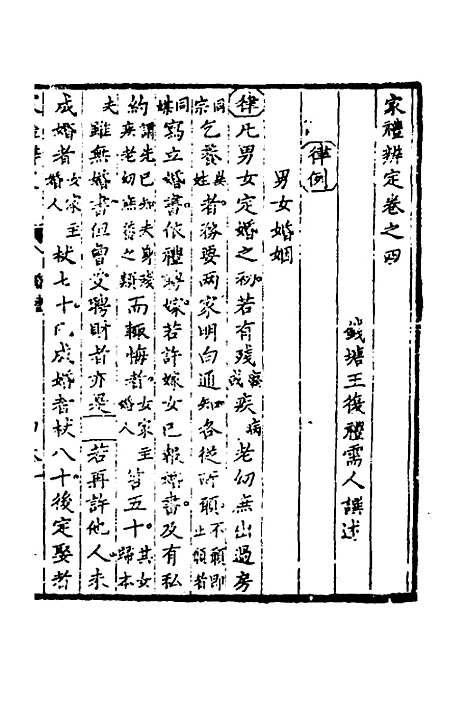 家禮辨定卷之四
錢塘王復禮需人譔述
律例
男女婚姻
律凡男女定婚之初若有殘廢或疾病老幼庶出過房
同宗乞養異姓者務要兩家明白通知各從所願不願即止願者
同媒寫立婚書依禮聘嫁若許嫁女已報婚書及有私
約謂先已知夫身殘疾老幼庶養之類而輒悔者女家主婚人笞五十其女歸本
夫雖無婚書但曾受聘財者亦是若再許他人未
成婚者女家主婚人杖七十已成婚者杖八十後定娶者